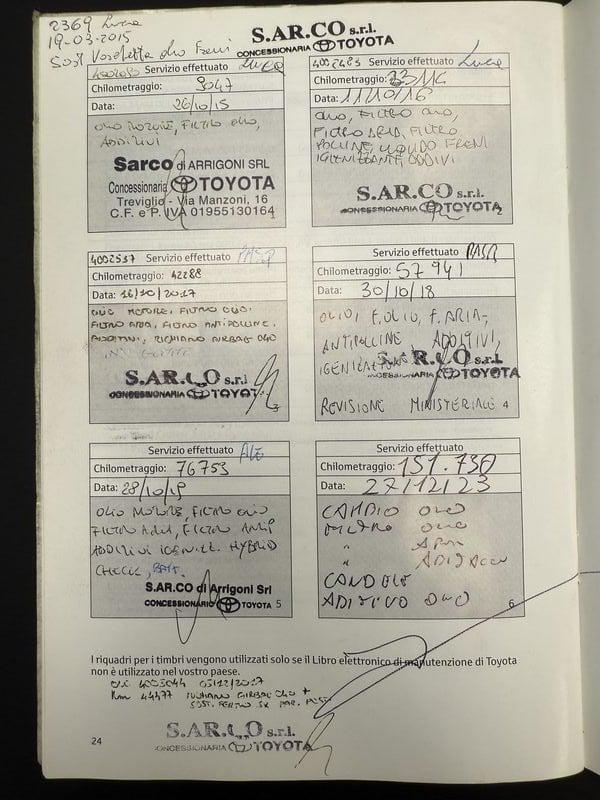 2369 Luca
19-03-2015
Sost Vaschetta olio Freni
S.AR.CO s.r.l.
CONCESSIONARIA TOYOTA
Servizio effettuato Luca
Chilometraggio: 9047
Data: 26/10/15
OLIO MOTORE, FILTRO OLIO,
ADDITIVI
Sarco di ARRIGONI SRL
Concessionaria TOYOTA
Treviglio - Via Manzoni, 16
C.F. e P. IVA 01955130164
Servizio effettuato Luca
Chilometraggio:
Data: 11/10/16
OLIO, FILTRO OLIO,
FILTRO ARIA, FILTRO
POLLINE, LIQUIDO FRENI
IGIENIZZANTE, ADDITIVI
S.AR.CO s.r.l.
CONCESSIONARIA TOYOTA
2
4002537 Servizio effettuato
Chilometraggio: 42288
Data: 16/10/2017
OLIO MOTORE, FILTRO OLIO,
FILTRO ARIA, FILTRO ANTIPOLLINE,
ADDITIVI, RICHIAMO AIRBAG
S.AR.CO s.r.l
CONCESSIONARIA TOYOTA
3
Servizio effettuato
Chilometraggio: 57941
Data: 30/10/18
OLIO, F. OLIO, F. ARIA,
ANTIPOLLINE, ADDITIVI,
S.AR.CO s.r.l.
CONCESSIONARIA TOYOTA
REVISIONE MINISTERIALE 4
Servizio effettuato ALE
Chilometraggio: 76753
Data: 28/10/19
OLIO MOTORE, FILTRO OLIO
FILTRO ARIA, FILTRO ANTIP
ADDITIVI IGENIZZ. HYBRID
CHECK,
S.AR.CO di Arrigoni Srl
CONCESSIONARIO TOYOTA 5
Servizio effettuato
Chilometraggio: 151.730
Data: 27/12/23
CAMBIO OLIO
FILTRO OLIO
" ARIA
" ABITACOLO
CANDELE
ADITIVO OLIO
6
I riquadri per i timbri vengono utilizzati solo se il Libro elettronico di manutenzione di Toyota
non è utilizzato nel vostro paese.
4003044 05/12/2017
Km 44477 RICHIAMO AIRBAG
S.AR.CO s.r.l.
CONCESSIONARIA TOYOTA
24